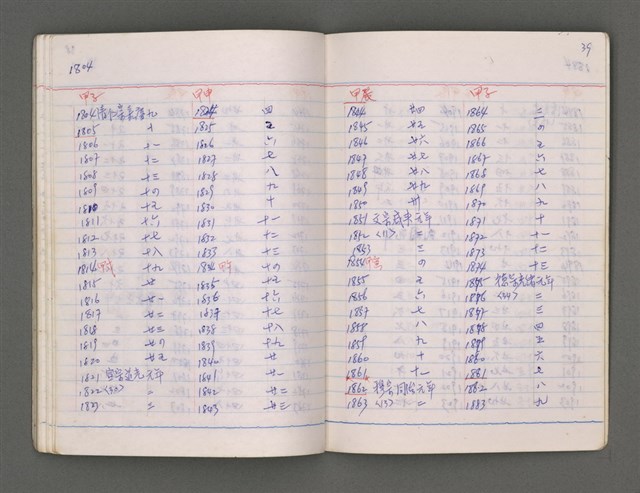 1804
甲子 甲申
1804 清仁宗嘉慶九 1824 四
1805 十 1825 五
1806 十一 1826 六
1807 十二 1827 七
1808 十三 1828 八
1809 十四 1829 九
1810 十五 1830 十
1811 十六 1831 十一
1812 十七 1832 十二
1813 十八 1833 十三
1814 甲戌 十九 1834 甲午 十四
1815 廿 1835 十五
1816 廿一 1836 十六
1817 廿二 1837 十七
1818 廿三 1838 十八
1819 廿四 1839 十九
1820 廿五 1840 廿
1821 宣宗道光元年 1841 廿一
1822 二 1842 廿二
1823 三 1843 廿三
39
甲辰 甲子
1844 廿四 1864 三
1845 廿五 1865 四
1846 廿六 1866 五
1847 廿七 1867 六
1848 廿八 1868 七
1849 廿九 1869 八
1850 卅 1870 九
1851 文宗咸豐元年 1871 十
1852 <11> 二 1872 十一
1853 三 1873 十二
1854 甲寅 四 1874 十三
1855 五 1875 德宗光緒元年
1856 六 1876 <34> 二
1857 七 1877 三
1858 八 1878 四
1859 九 1879 五
1860 十 1880 六
1861 十一 1881 七
1862 穆宗同治元年 1882 八
1863 <13> 二 1883 九